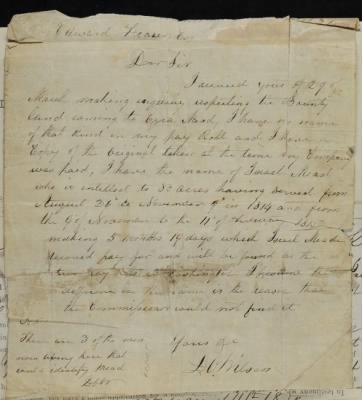 Edward
Dear Sir
I received yours of 29th
March making inquiry respecting the Bounty
Land coming to Ezra Mead, I have no name
of that kind in my pay Roll and I have a
Copy of the Original taken at the time my Company
was paid, I have the name of Israel Mead
who is intitled to acres having served from
August 26th to November 9th in 1814 and from
the 9th November to the 11th of
making 5 months 19 days which Israel Mead
received pay for and will be found on the
two pay Rolls at Washington I presume the
difference in the name is the reason that
the Commissioner could not find it.
There are 3 of the men
now living here that
could identify Mead
Yours &c
Wilson